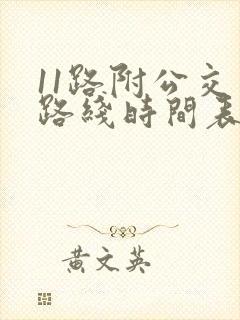 11路附公交
路綫時間表
黄文英